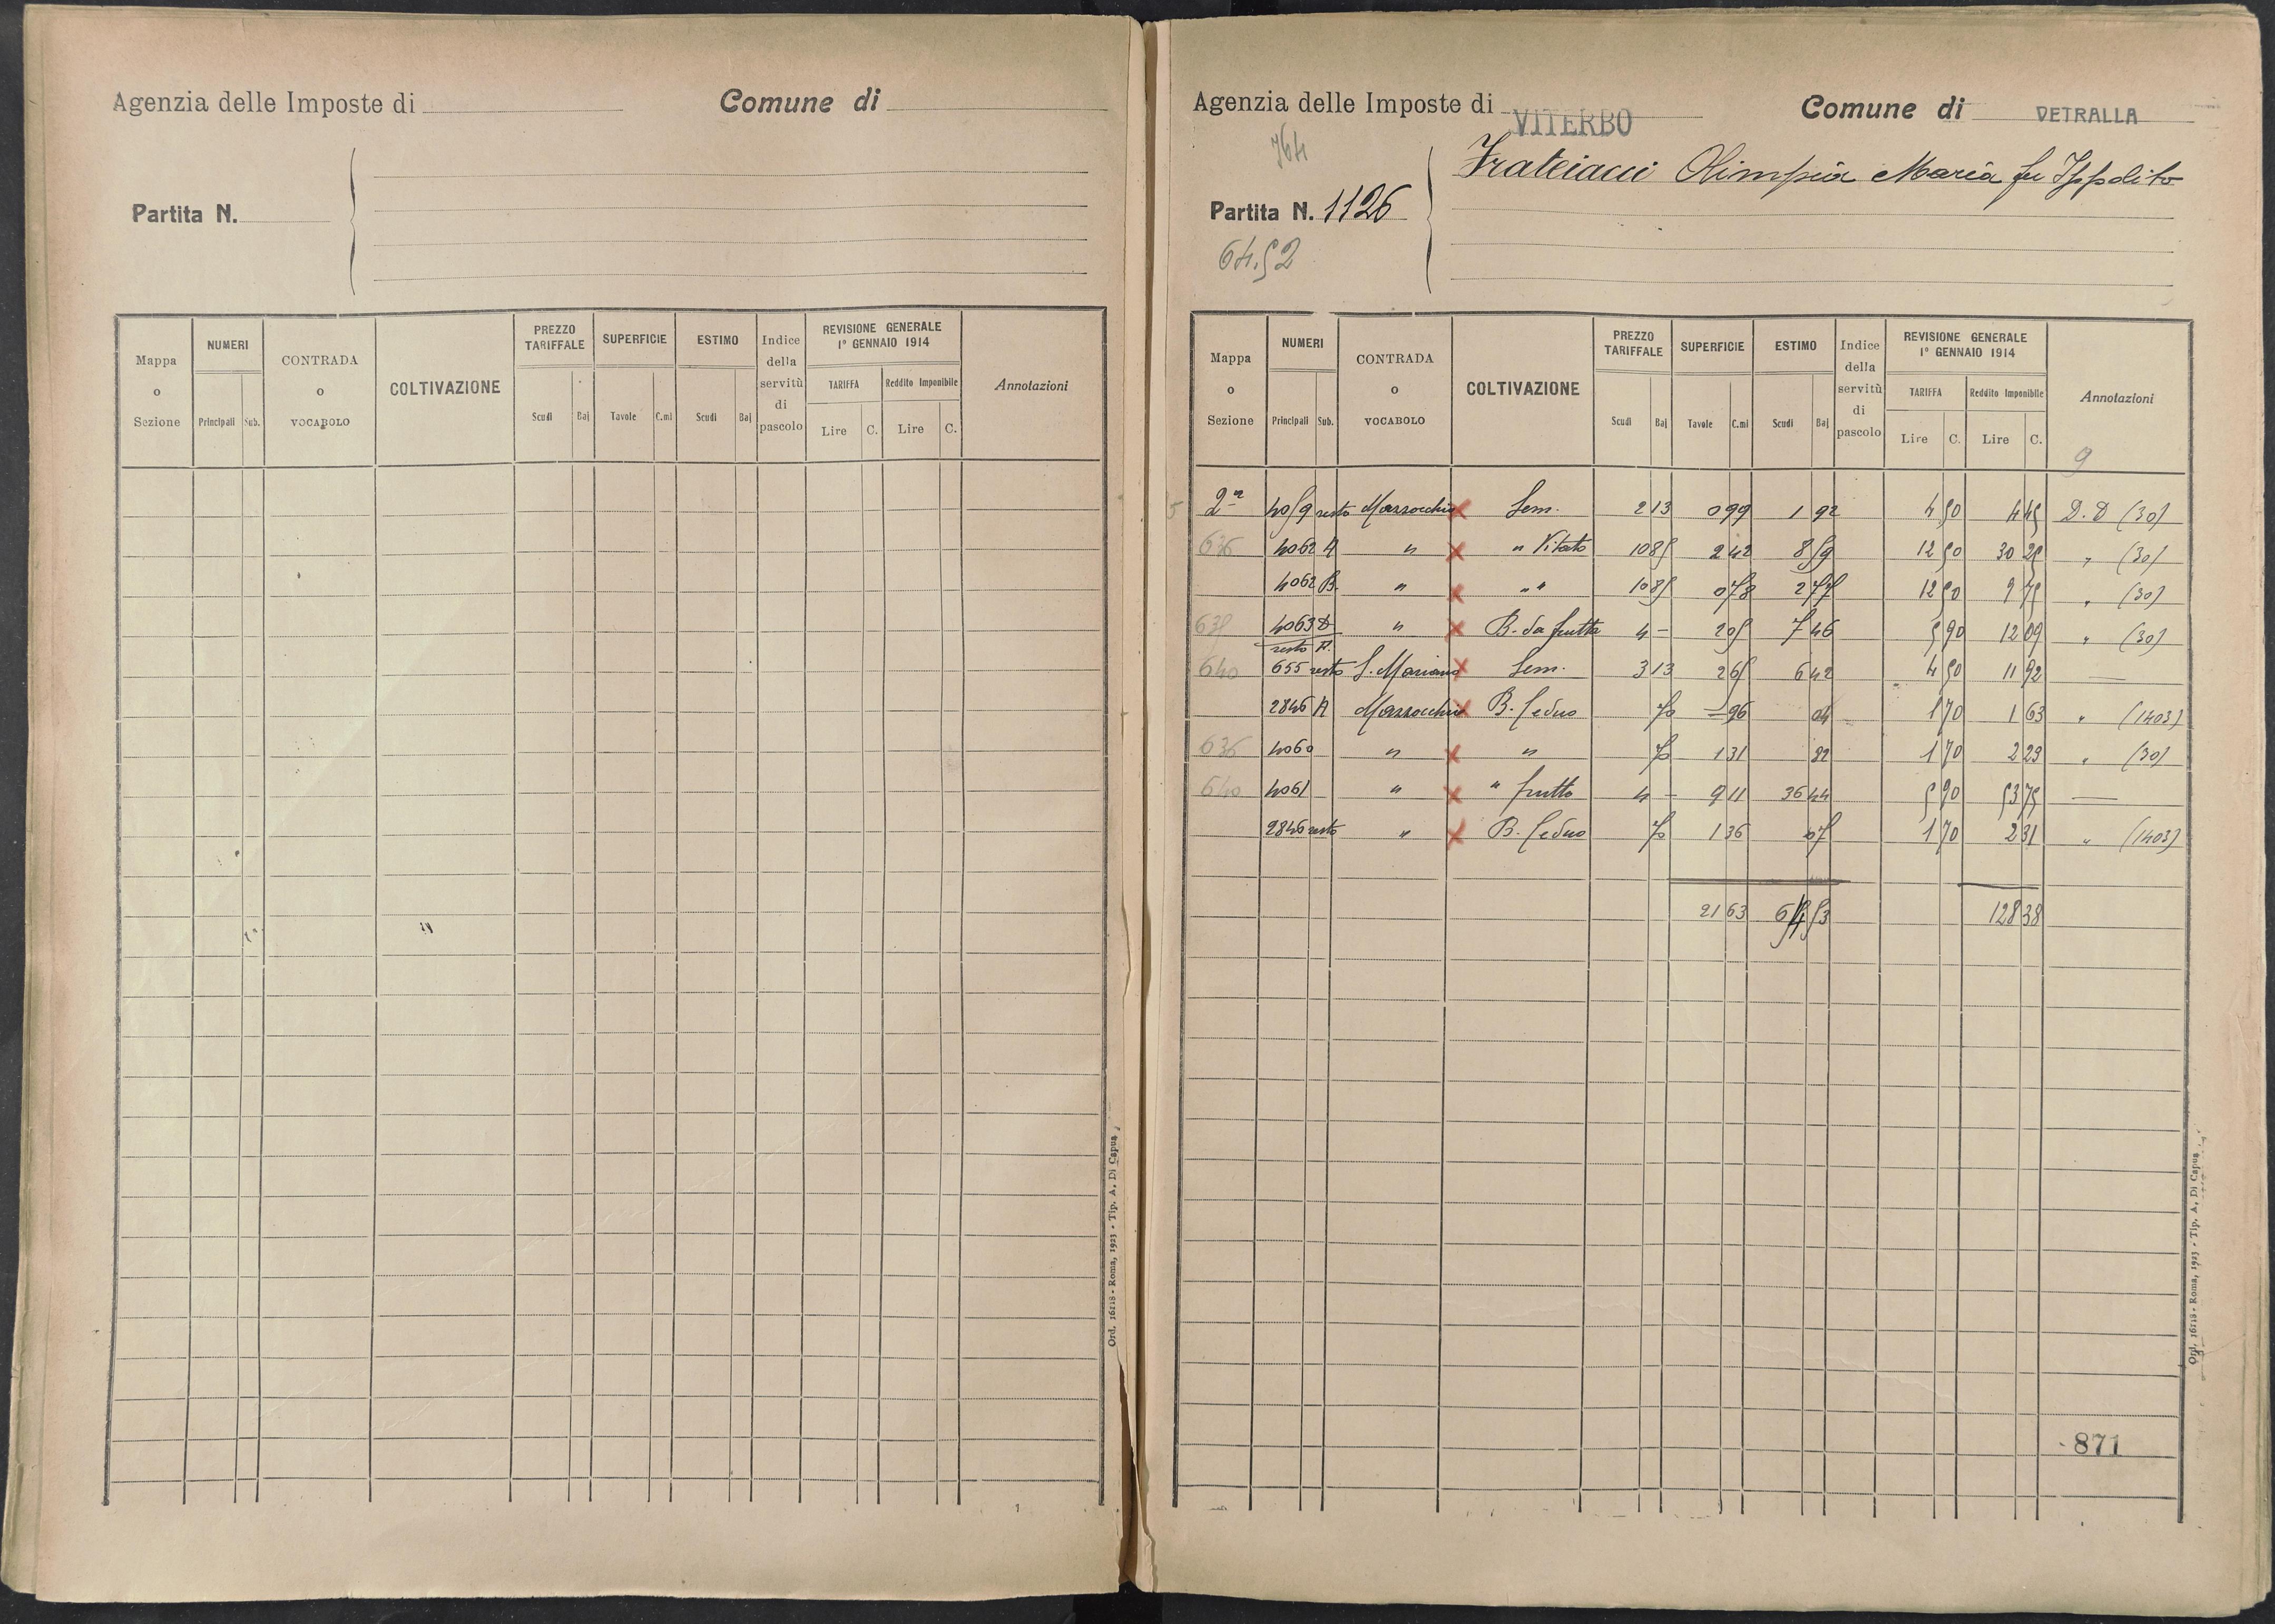 Agenzia delle Imposte di
Comune di
Partita N.
Mappa o Sezione
NUMERI
Principali Sub.
CONTRADA o VOCABOLO
COLTIVAZIONE
PREZZO TARIFFALE
Scudi Baj
SUPERFICIE
Tavole C.mi
ESTIMO
Scudi Baj
Indice della servitù di pascolo
REVISIONE GENERALE
1° GENNAIO 1914
TARIFFA
Lire C.
Reddito Imponibile
Lire C.
Annotazioni
Ord. 16118 - Roma, 1923 - Tip. A. Di Capua
Agenzia delle Imposte di VITERBO
Comune di VETRALLA
764
Frateiacci Olimpia Maria fu Ippolito
Partita N. 1126
64.52
Mappa o Sezione
NUMERI
Principali Sub.
CONTRADA o VOCABOLO
COLTIVAZIONE
PREZZO TARIFFALE
Scudi Baj
SUPERFICIE
Tavole C.mi
ESTIMO
Scudi Baj
Indice della servitù di pascolo
REVISIONE GENERALE
1° GENNAIO 1914
TARIFFA
Lire C.
Reddito Imponibile
Lire C.
Annotazioni
9
5 2ª 4059 resto Mazzocchio x Sem. 2 13 0 99 1 92 4 50 4 45 D.D (30)
636 4062 A " x " Vitato 10 85 2 42 8 59 12 50 30 25 " (30)
4062 B. " x " " 10 85 0 78 2 77 12 50 9 75 " (30)
638 4063 D " x B. da frutta 4 - 2 05 7 46 5 90 12 09 " (30)
resto A.
640 655 resto S. Mariano x Sem. 3 13 2 65 6 42 4 50 11 92 —
2846 A Mazzocchio x B. Ceduo - 96 04 1 70 1 63 " (1403)
636 4060 " x " 1 31 82 1 70 2 23 " (30)
640 4061 " x " frutto 4 - 9 11 36 44 5 90 53 75 —
2846 resto " x B. Ceduo 1 36 07 1 70 2 31 " (1403)
21 63 64 53 128 38
871
Ord. 16118 - Roma, 1923 - Tip. A. Di Capua